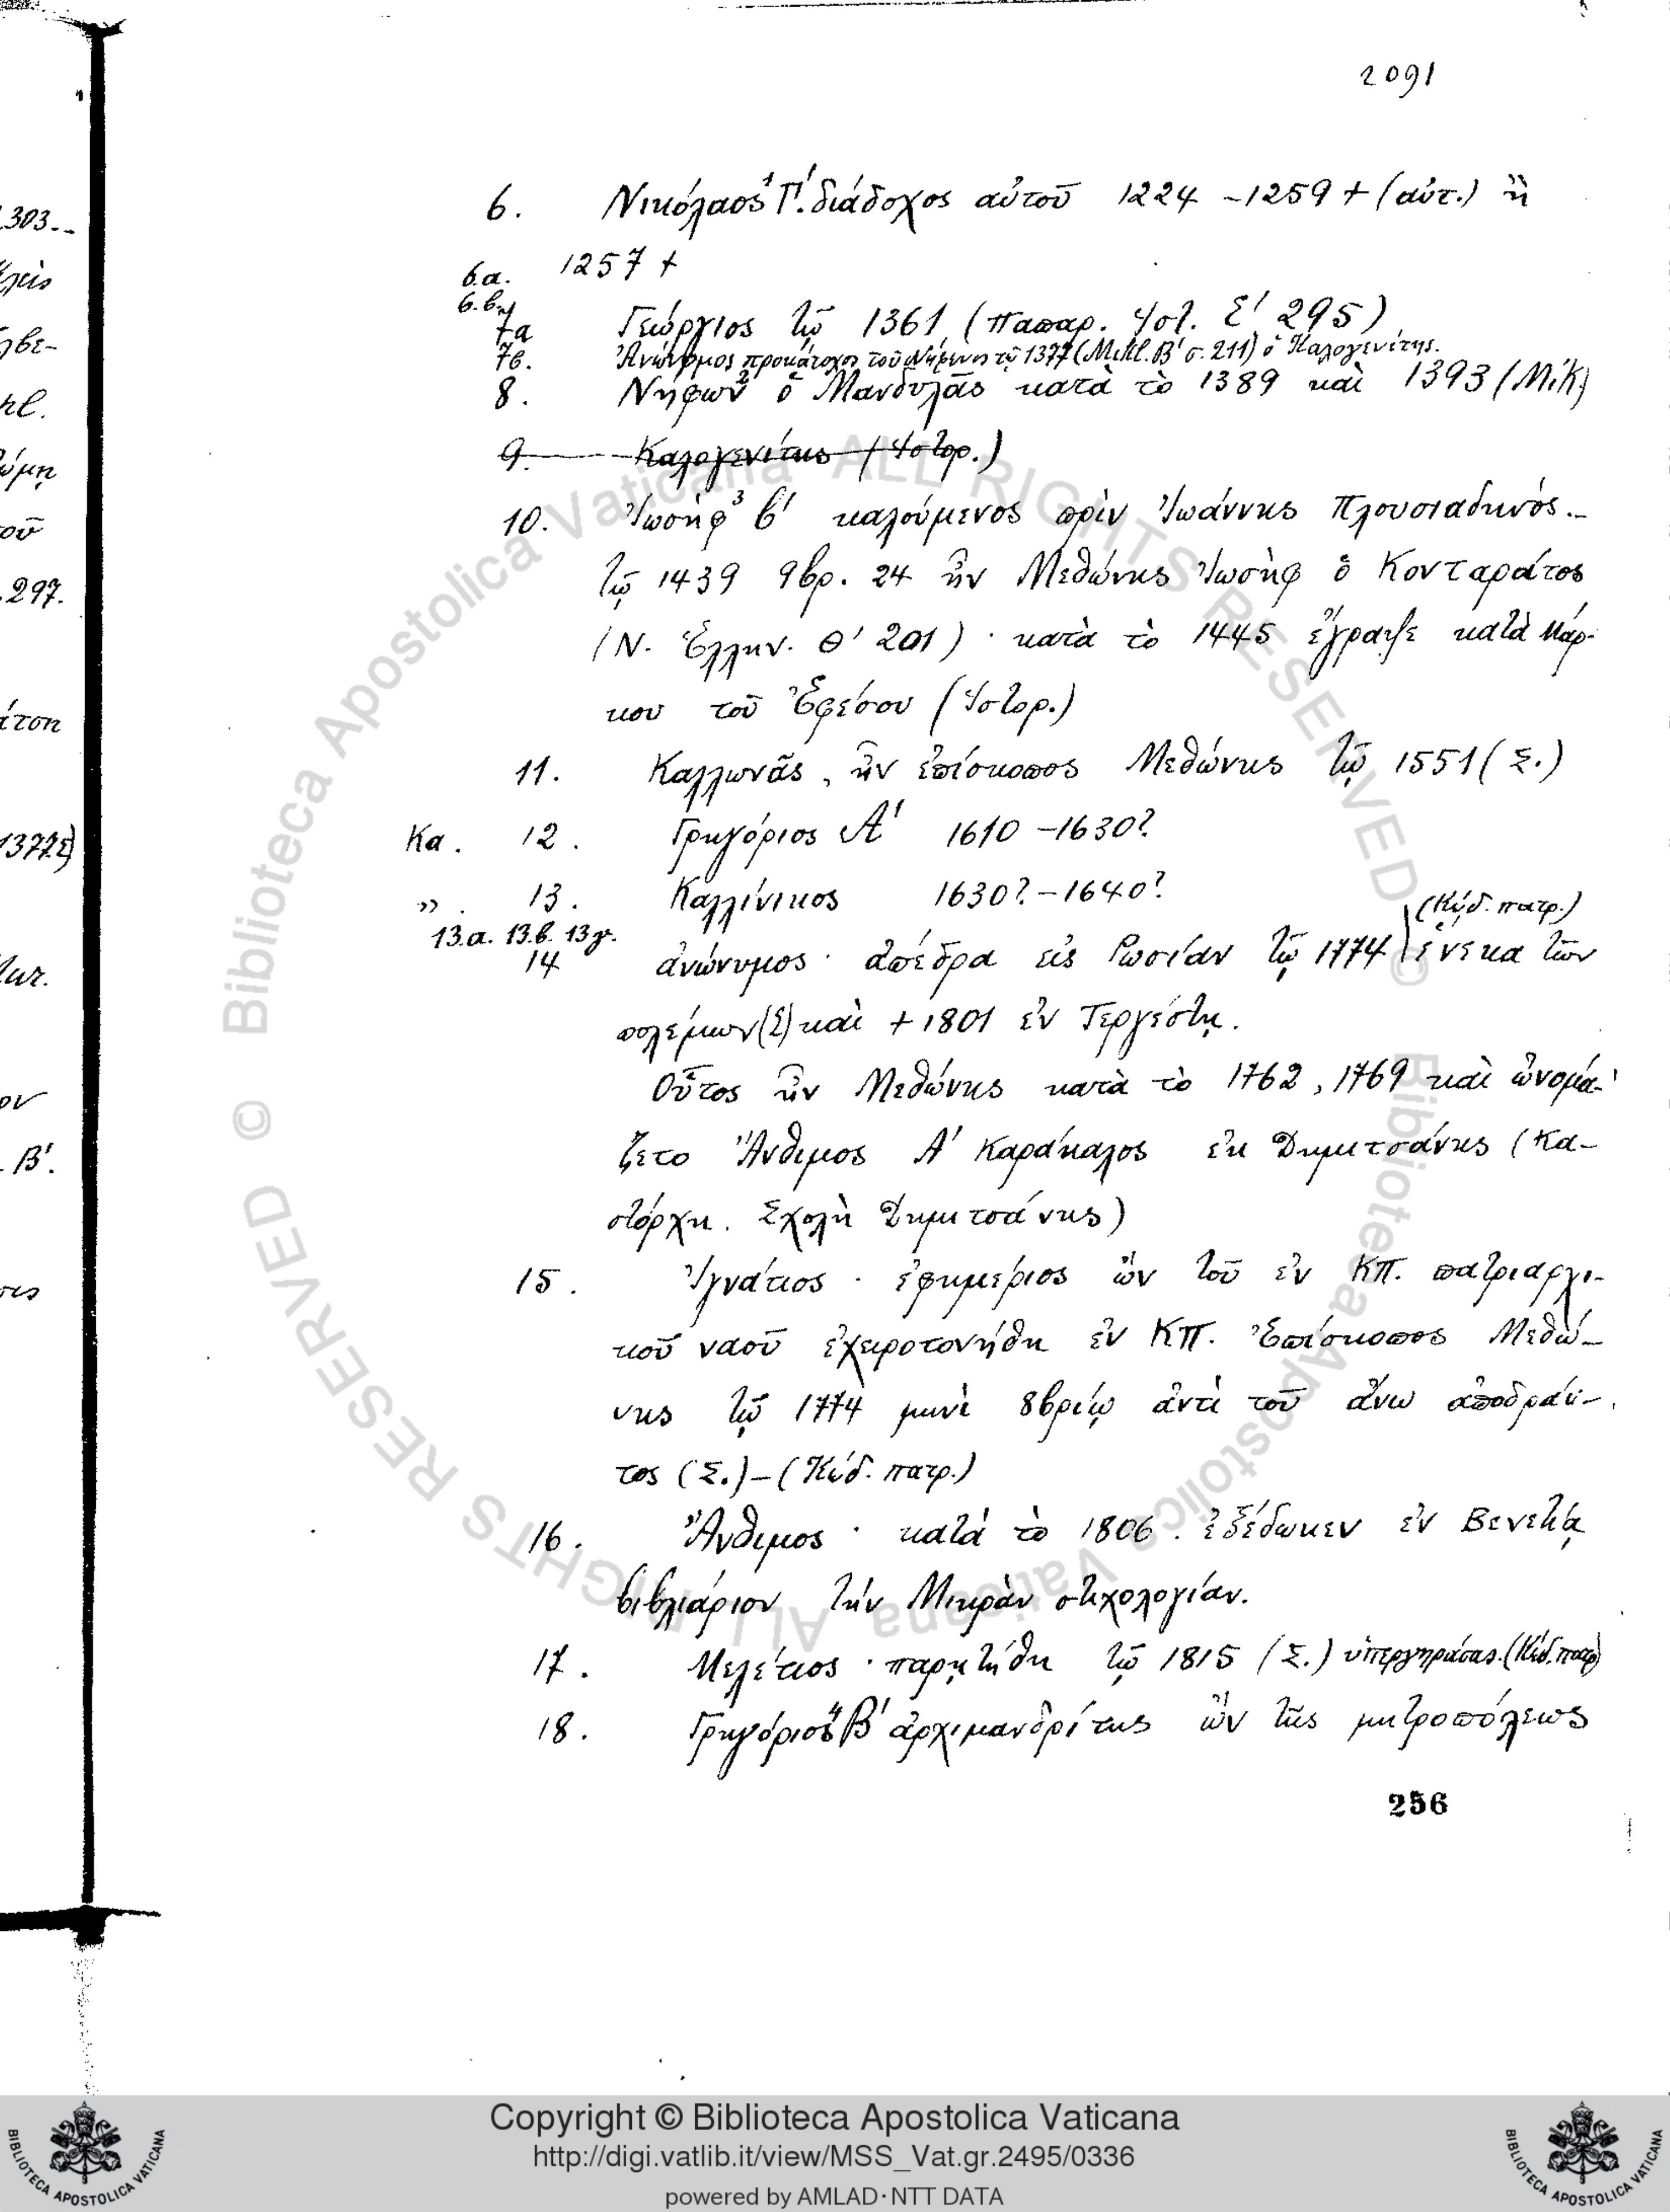 2091
303.-
6. Νικόλαος Γ΄. διάδοχος αὐτοῦ 1224 -1259 + (αὐτ.) ἢ
6.α. 1257 +
6.β.
7α Γεώργιος τῷ 1361 (Παπαρ. Ἱστ. Ε΄ 295)
7β. Ἀνώνυμος προκάτοχος τοῦ Νήφωνος τῷ 1377 (Μικλ. Β΄ σ. 211) ὁ Καλογενίτης.
8. Νήφων ὁ Μανδυλᾶς κατὰ τὸ 1389 καὶ 1393 (Μ.Κ)
9. Καλογενίτης (Ἱστορ.)
10. Ἰωσὴφ β΄ καλούμενος πρὶν Ἰωάννης Πλουσιαδηνός.-
τῷ 1439 9βρ. 24 ἦν Μεθώνης Ἰωσὴφ ὁ Κονταράτος
297.
(Ν. Ἑλλην. Θ΄ 201) · κατὰ τὸ 1445 ἔγραψε κατὰ Μάρ-
κου τοῦ Ἐφέσου (Ἱστορ.)
11. Καλλωνᾶς, ἦν ἐπίσκοπος Μεθώνης τῷ 1551 (Σ.)
Κα. 12. Γρηγόριος Α΄ 1610 -1630?
» . 13. Καλλίνικος 1630? - 1640?
(Κώδ. πατρ.)
13.α. 13.β. 13γ.
14 ἀνώνυμος · ἀπέδρα εἰς Ῥωσίαν τῷ 1774 ἕνεκα τῶν
πολέμων (Σ) καὶ + 1801 ἐν Τεργέστῃ.
Οὗτος ἦν Μεθώνης κατὰ τὸ 1762, 1769 καὶ ὠνομά-
ζετο Ἄνθιμος Α΄ Καράκαλος ἐκ Δημιτσάνης (Κα-
Β΄.
στόρχη. Σχολὴ Δημιτσάνης)
15. Ἰγνάτιος · ἐφημέριος ὢν τοῦ ἐν ΚΠ. πατριαρχι-
κοῦ ναοῦ ἐχειροτονήθη ἐν ΚΠ. Ἐπίσκοπος Μεθώ-
νης τῷ 1774 μηνὶ 8βρίῳ ἀντὶ τοῦ ἄνω ἀποδράν-
τος (Σ.) - (Κώδ. πατρ.)
16. Ἄνθιμος · κατὰ τὸ 1806. ἐξέδωκεν ἐν Βενετίᾳ
βιβλιάριον τὴν Μικρὰν στιχολογίαν.
17. Μελέτιος · παρῃτήθη τῷ 1815 (Σ.) ὑπεργηράσας. (Κώδ. πατρ)
18. Γρηγόριος Β΄ ἀρχιμανδρίτης ὢν τῆς μητροπόλεως
256
© Biblioteca Apostolica Vaticana ALL RIGHTS RESERVED
© Biblioteca Apostolica Vaticana ALL RIGHTS RESERVED
Copyright © Biblioteca Apostolica Vaticana
http://digi.vatlib.it/view/MSS_Vat.gr.2495/0336
powered by AMLAD·NTT DATA
BIBLIOTECA APOSTOLICA VATICANA
BIBLIOTECA APOSTOLICA VATICANA